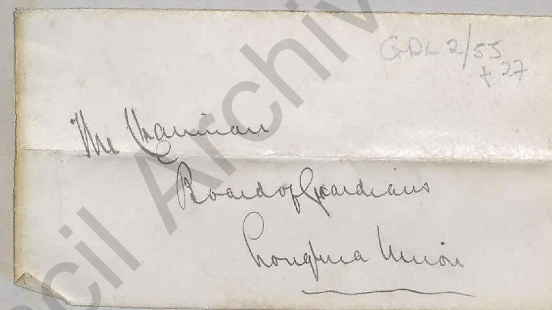 GDL 2/55
+ 27
The Chairman
Board of Guardians
Loughrea Union
cil Archiv